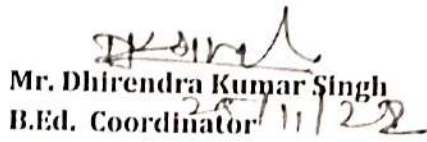 Mr. Dhirendra Kumar Singh
B.Ed. Coordinator